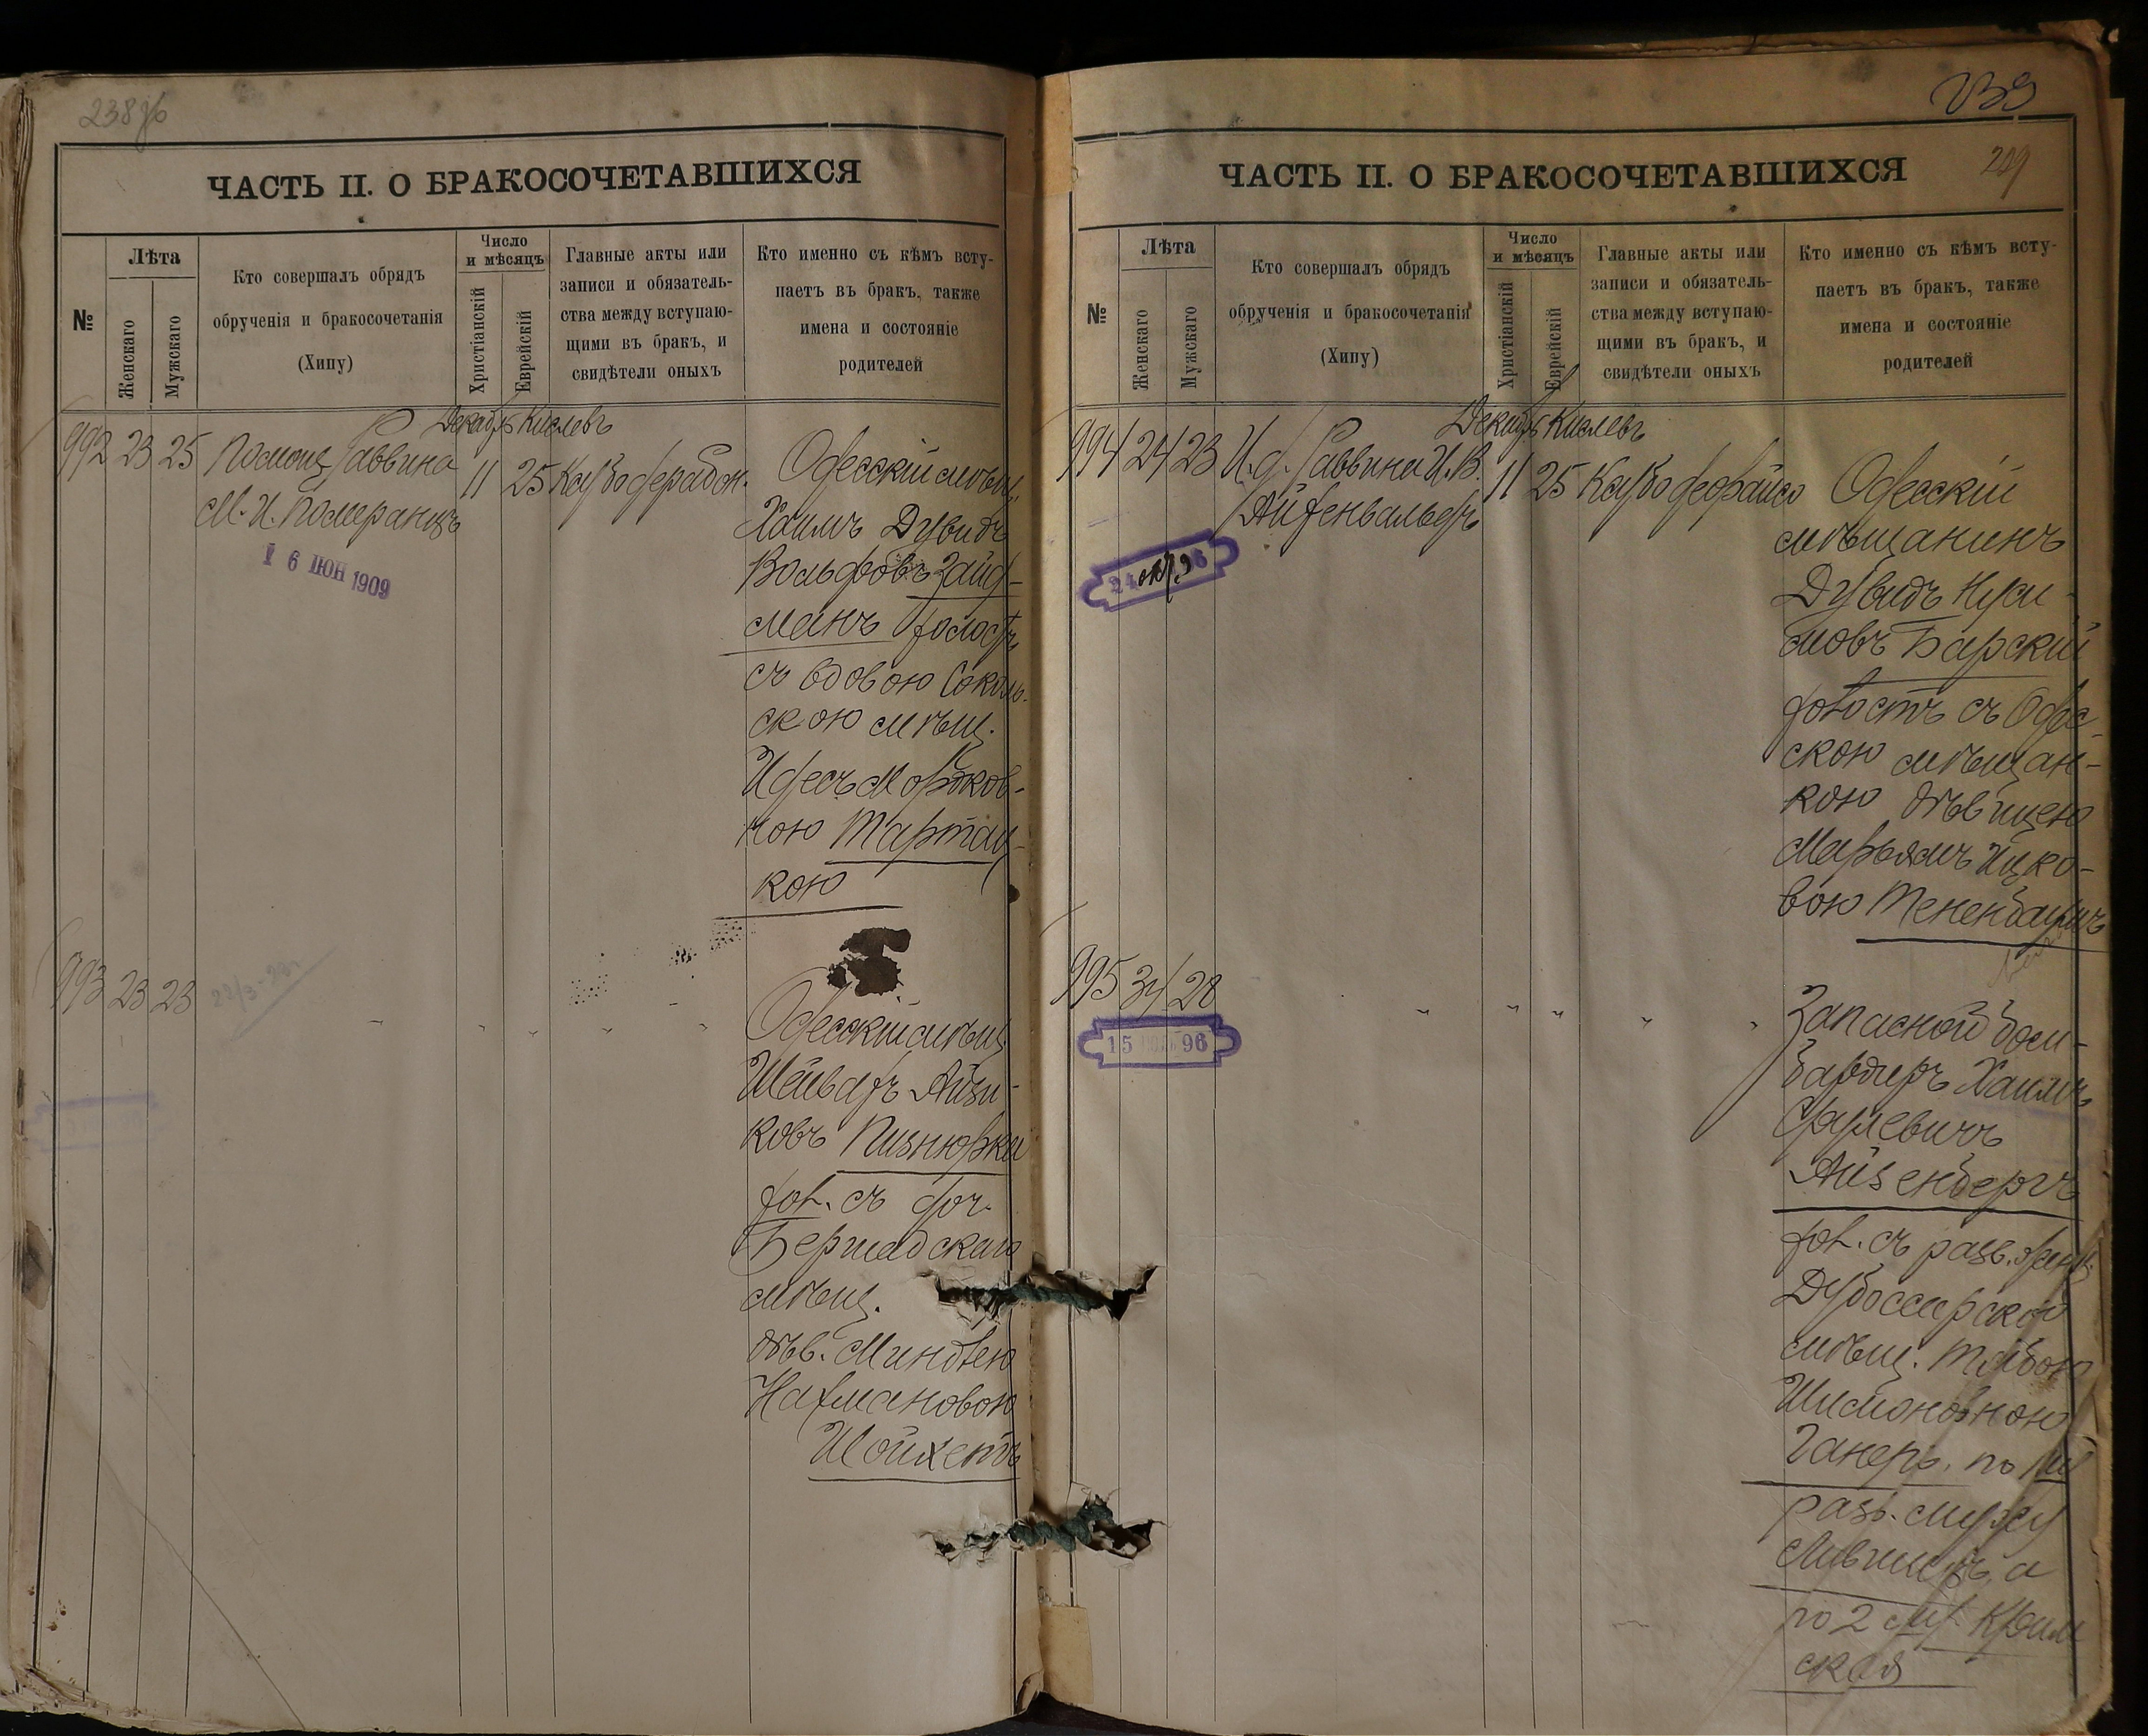 238 об
ЧАСТЬ II. О БРАКОСОЧЕТАВШИХСЯ
№
Лѣта
Женскаго
Мужскаго
Кто совершалъ обрядъ
обрученія и бракосочетанія
(Хипу)
Число
и мѣсяцъ
Христіанскій
Еврейскій
Главные акты или
записи и обязатель-
ства между вступаю-
щими въ бракъ, и
свидѣтели оныхъ
Кто именно съ кѣмъ всту-
паетъ въ бракъ, также
имена и состояніе
родителей
Декабрь Кислевъ
992 23 25 Помощ. Раввина 11 25
М. И. Померанцъ
6 ІЮН 1909
Одесскій мѣщ.
Хаимъ Дувидъ
Вольфовъ Зайд-
манъ холостъ
съ вдовою Соколь-
скою мѣщ.
Идесъ Мордков-
ною Тартац-
кою
993 23 23
Одесскій мѣщ.
Айзи-
ковъ
хол. съ доч.
Бершадскаго
мѣщ.
дѣв. Миндлею
Нахмановою
Шойхетъ
239
ЧАСТЬ II. О БРАКОСОЧЕТАВШИХСЯ
№
Лѣта
Женскаго
Мужскаго
Кто совершалъ обрядъ
обрученія и бракосочетанія
(Хипу)
Число
и мѣсяцъ
Христіанскій
Еврейскій
Главные акты или
записи и обязатель-
ства между вступаю-
щими въ бракъ, и
свидѣтели оныхъ
Кто именно съ кѣмъ всту-
паетъ въ бракъ, также
имена и состояніе
родителей
Декабрь Кислевъ
994 24 23 И. д. Раввина И. В. 11 25
Айхенвальдъ
Одесскій
мѣщанинъ
Дувидъ Нуси-
мовъ Барскій
холостъ съ Одес-
скою мѣщан-
кою дѣвицею
Марьямъ Ицко-
вою Тененбаумъ
995 34 28
15 96
Запасной бом-
бардиръ Хаимъ
Срулевичъ
Айзенбергъ
хол. съ разв.
Дубоссарской
мѣщ. Тайбою
Шимоновною
Ганеръ, по
разв. мужу
а
по 2 м. Крым
ская